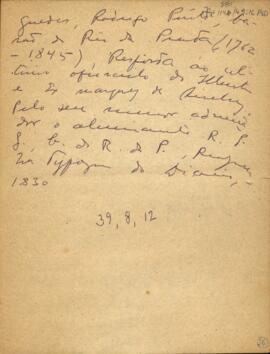 guedes, Rodrigo Pinto, ba-
rão do Rio da Prata, (1762
- 1845) Resposta ao ul-
timo opusculo do Illustre
e Ex marquez de
pelo seu menor admira-
dor o almirante R. P.
g. b. do R. da P.,
Na Typogra do Diario, -
1830
39, 8, 12